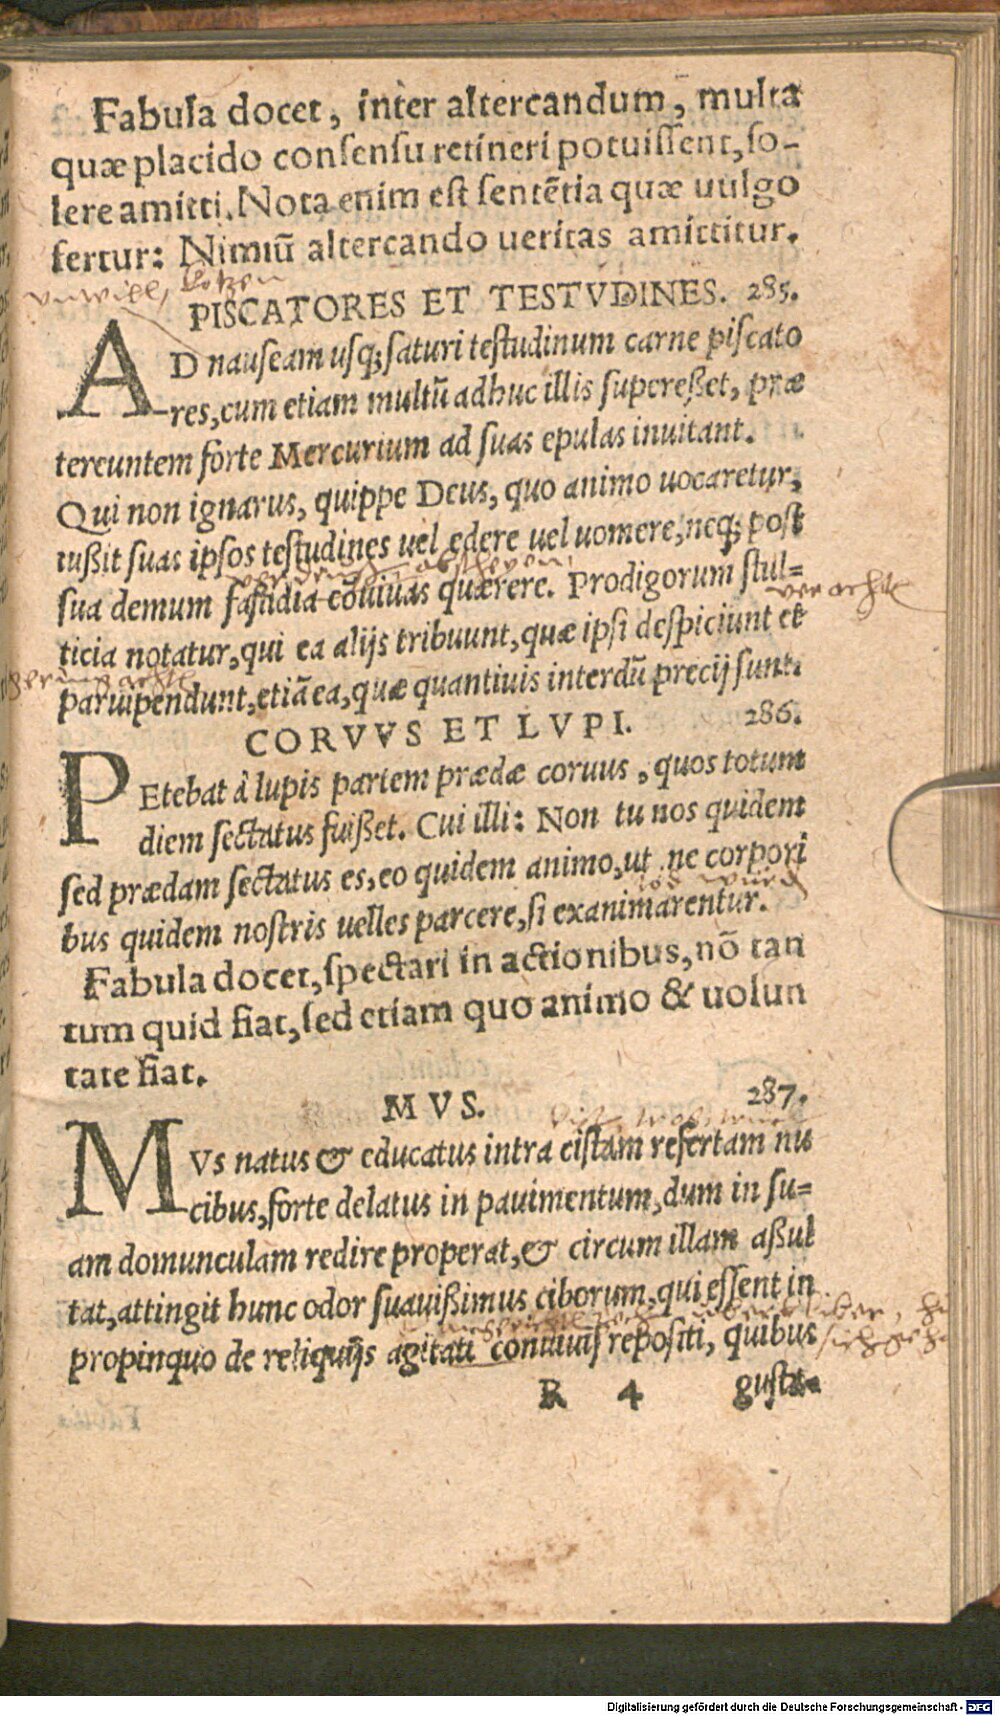 Fabula docet, inter altercandum, multa
quæ placido consensu retineri potuissent, so-
lere amitti. Nota enim est sentẽtia quæ uulgo
fertur: Nimiũ altercando ueritas amittitur.
vnwill, kotzen
PISCATORES ET TESTVDINES. 285.
AD nauseam usq; saturi testudinum carne piscato
res, cum etiam multũ adhuc illis superesset, præ
tereuntem forte Mercurium ad suas epulas inuitant.
Qui non ignarus, quippe Deus, quo animo uocaretur,
iussit suas ipsos testudines uel edere uel uomere, neq; post
sua demum fastidia cõuiuas quærere. Prodigorum stul=
verachte
ticia notatur, qui ea alijs tribuunt, quæ ipsi despiciunt et
paruipendunt, etiã ea, quæ quantiuis interdũ precij sunt.
CORVVS ET LVPI. 286.
PEtebat à lupis partem prædæ coruus, quos totum
diem sectatus fuisset. Cui illi: Non tu nos quidem
sed prædam sectatus es, eo quidem animo, ut ne corpori
bus quidem nostris uelles parcere, si exanimarentur.
Fabula docet, spectari in actionibus, nõ tan
tum quid fiat, sed etiam quo animo & uolun
tate fiat.
MVS. 287.
MVs natus & educatus intra cistam refertam nu
cibus, forte delatus in pauimentum, dum in su=
am domunculam redire properat, & circum illam assul
tat, attingit hunc odor suauissimus ciborum, qui essent in
propinquo de reliquijs agitati conuiuij repositi, quibus
R 4 gusta-
Digitalisierung gefördert durch die Deutsche Forschungsgemeinschaft - DFG